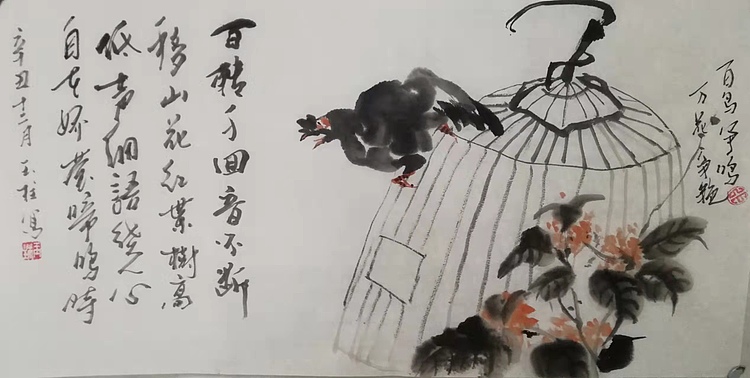 百鸟争鸣
万花争艳
百啭千回音不断
移山花红葉樹高
低声细語绕人心
自在娇莺啼鸣时
辛丑十二月 玉柱写